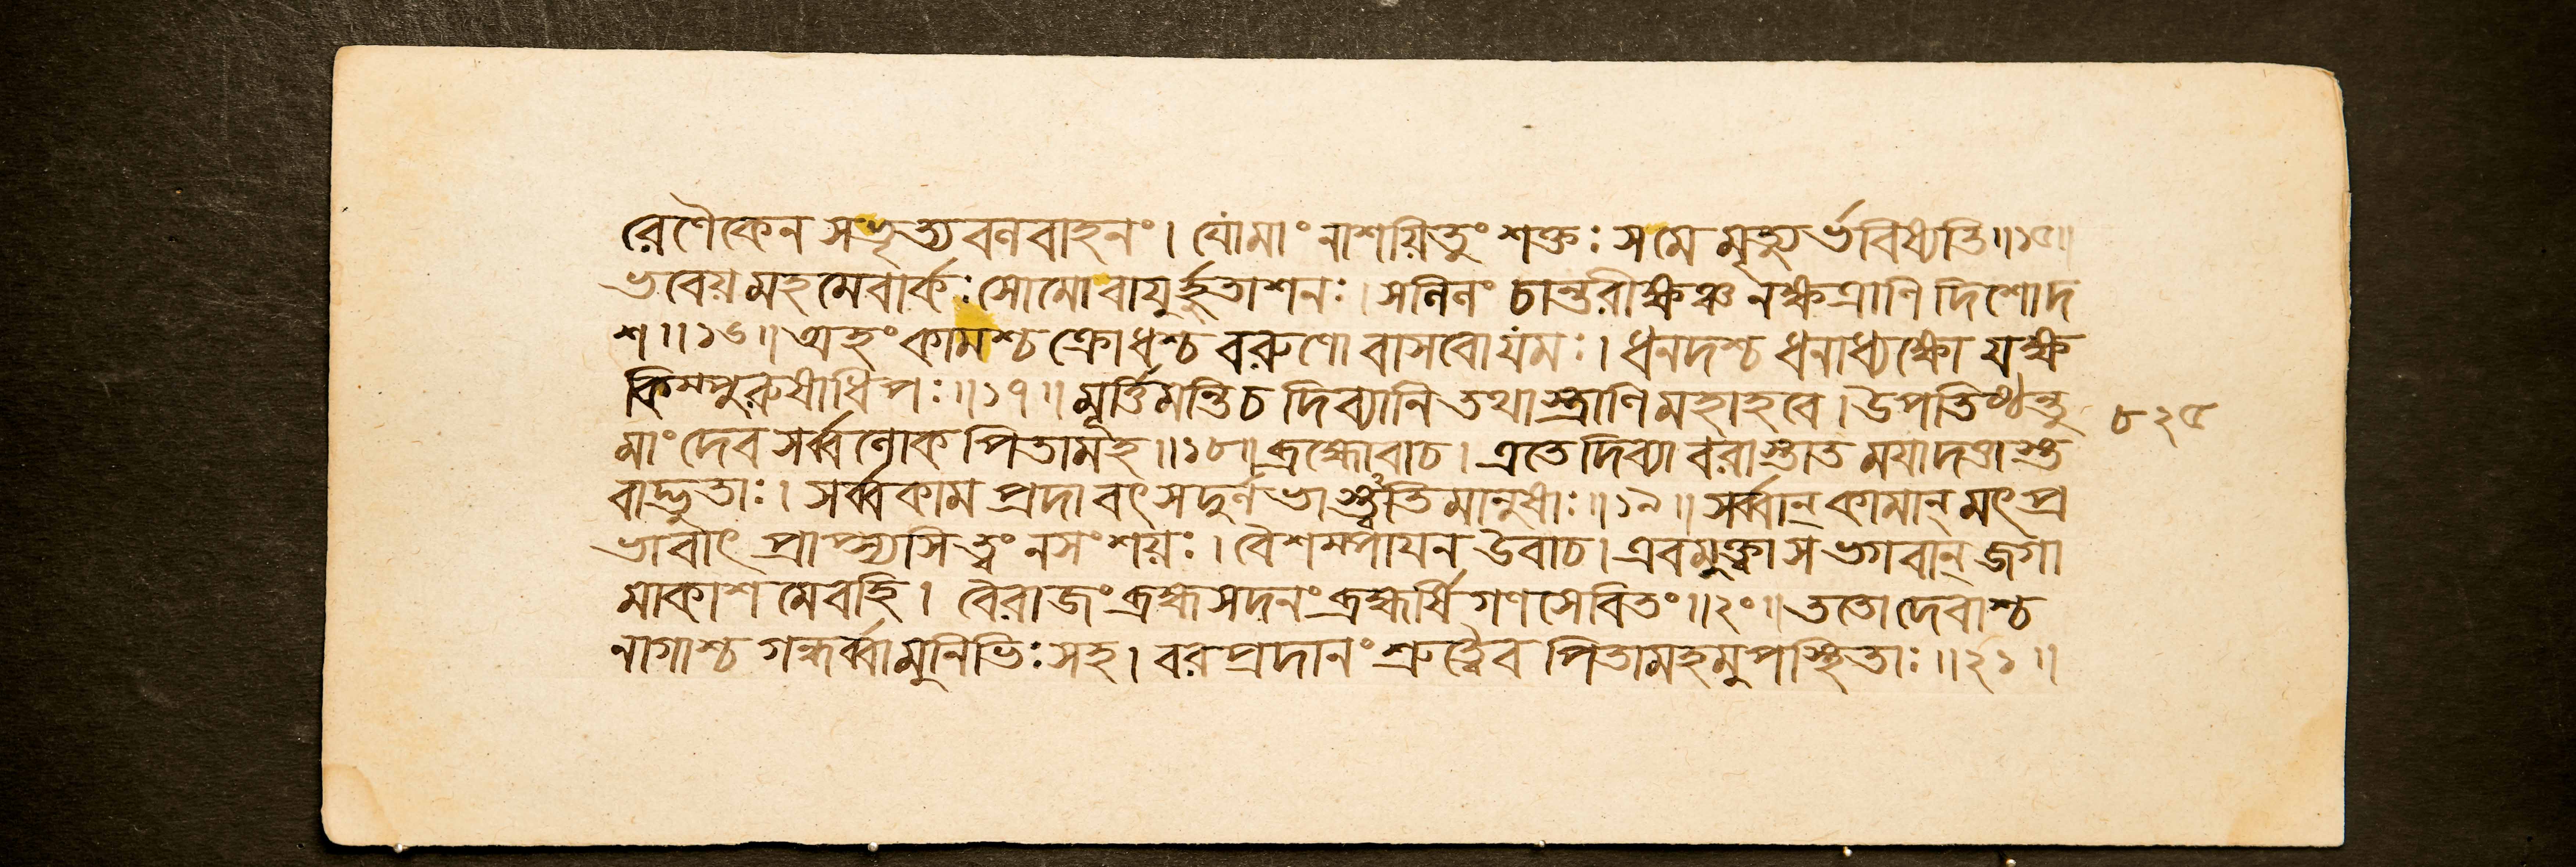 রেণৈকেন সভৃত্যবলবাহনং। যোমাং নাশয়িতুং শক্তঃ সমে মৃত্যুর্ভবিষ্যতি॥১৫॥
ভবেয়মহমেবার্কঃ সোমোবায়ুর্হুতাশনঃ। সলিলং চান্তরীক্ষঞ্চ নক্ষত্রাণি দিশোদ
শ॥১৬॥ অহং কামশ্চ ক্রোধশ্চ বরুণো বাসবোযমঃ। ধনদশ্চ ধনাধ্যক্ষো যক্ষ
কিম্পুরুষাধিপঃ॥১৭॥ মূর্ত্তিমন্তিচ দিব্যানি তথাস্ত্রাণি মহাহবে। উপতিষ্ঠন্তু ৮২৫
মাং দেব সর্ব্বলোক পিতামহ॥১৮॥ ব্রহ্মোবাচ। এতেদিব্যা বরাস্তাত ময়াদত্তাস্ত
বাদ্ভুতাঃ। সর্ব্বকাম প্রদা বৎসদুর্লভা মানুষাঃ॥১৯॥ সর্ব্বান্ কামান্ মৎপ্র
ভাবাৎ প্রাপ্স্যসিত্বং নসংশয়ঃ। বৈশম্পায়ন উবাচ। এবমুক্ত্বাস ভগবান্ জগা
মাকাশ মেবহি। বৈরাজং ব্রহ্মসদনং ব্রহ্মর্ষিগণ সেবিতং॥২০॥ ততোদেবাশ্চ
নাগাশ্চ গন্ধর্ব্বামুনিভিঃসহ। বরপ্রদানং শ্রুত্বৈব পিতামহমুপস্থিতাঃ॥২১॥